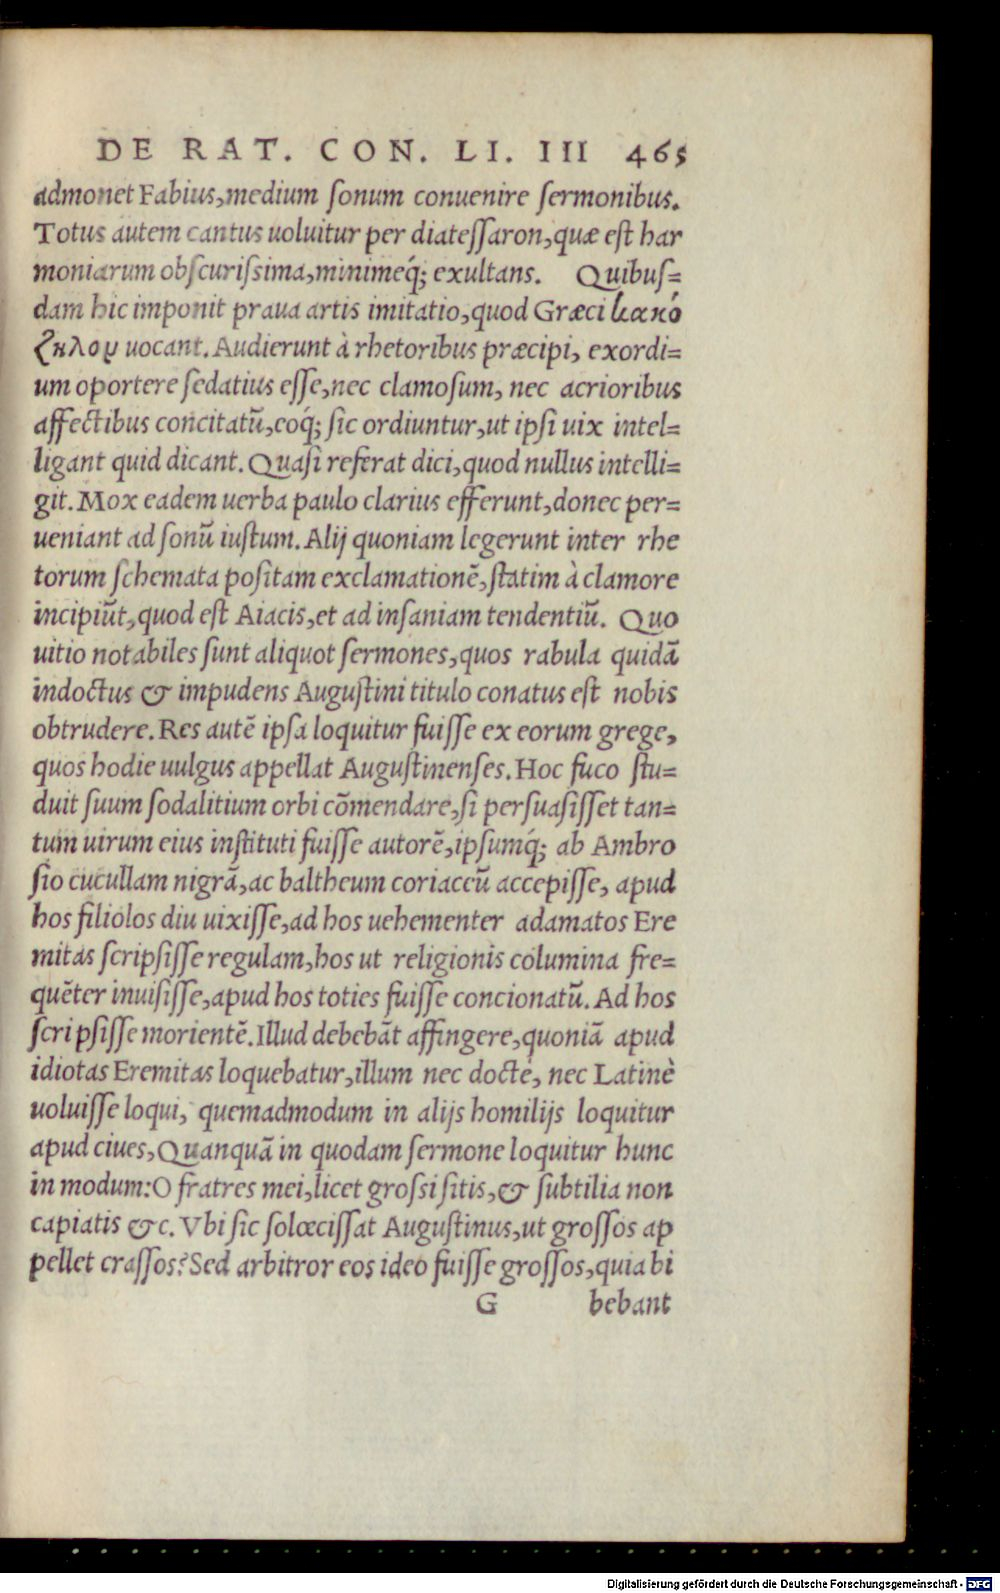 DE RAT. CON. LI. III 465
admonet Fabius, medium sonum conuenire sermonibus.
Totus autem cantus uoluitur per diatessaron, quæ est har
moniarum obscurissima, minimeq́; exultans. Quibus=
dam hic imponit praua artis imitatio, quod Græci κακό
ζηλον uocant. Audierunt à rhetoribus præcipi, exordi=
um oportere sedatius esse, nec clamosum, nec acrioribus
affectibus concitatũ, eoq́; sic ordiuntur, ut ipsi uix intel=
ligant quid dicant. Quasi referat dici, quod nullus intelli=
git. Mox eadem uerba paulo clarius efferunt, donec per=
ueniant ad sonũ iustum. Alij quoniam legerunt inter rhe
torum schemata positam exclamationẽ, statim à clamore
incipiũt, quod est Aiacis, et ad insaniam tendentiũ. Quo
uitio notabiles sunt aliquot sermones, quos rabula quidã
indoctus & impudens Augustini titulo conatus est nobis
obtrudere. Res autẽ ipsa loquitur fuisse ex eorum grege,
quos hodie uulgus appellat Augustinenses. Hoc fuco stu=
duit suum sodalitium orbi cõmendare, si persuasisset tan=
tum uirum eius instituti fuisse autorẽ, ipsumq́; ab Ambro
sio cucullam nigrã, ac baltheum coriaceũ accepisse, apud
hos filiolos diu uixisse, ad hos uehementer adamatos Ere
mitas scripsisse regulam, hos ut religionis columina fre=
quẽter inuisisse, apud hos toties fuisse concionatũ. Ad hos
scripsisse morientẽ. Illud debebãt affingere, quoniã apud
idiotas Eremitas loquebatur, illum nec doctè, nec Latinè
uoluisse loqui, quemadmodum in alijs homilijs loquitur
apud ciues, Quanquã in quodam sermone loquitur hunc
in modum: O fratres mei, licet grossi sitis, & subtilia non
capiatis &c. Vbi sic solœcissat Augustinus, ut grossos ap
pellet crassos? Sed arbitror eos ideo fuisse grossos, quia bi
G bebant
Digitalisierung gefördert durch die Deutsche Forschungsgemeinschaft - DFG